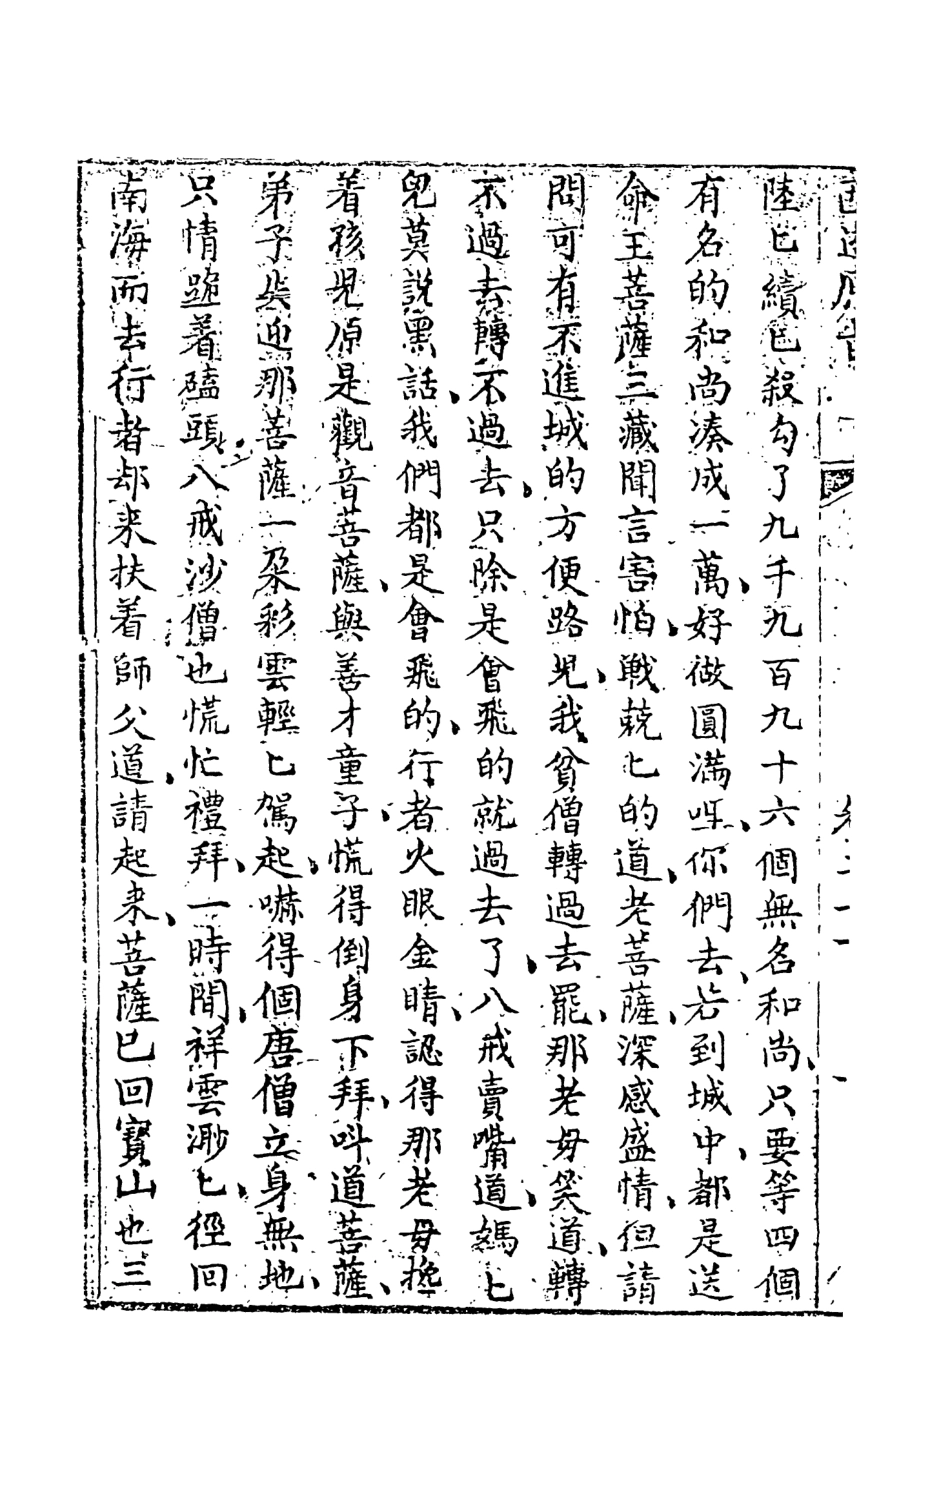 陸匕續匕殺勾了九千九百九十六個無名和尚只要等四個
有名的和尚凑成一萬好做圓滿哩你們去若到城中都是送
命王菩薩三藏聞言害怕戰兢匕的道老菩薩深感盛情但請
問可有不進城的方便路兒我貧僧轉過去罷那老母笑道轉
不過去轉不過去只除是會飛的就過去了八戒賣嘴道媽匕
兒莫説黑話我們都是會飛的行者火眼金睛認得那老母攙
着孩兒原是觀音菩薩與善才童子慌得倒身下拜叫道菩薩
弟子失迎那菩薩一朶彩雲輕匕駕起嚇得個唐僧立身無地
只情跪着磕頭八戒沙僧也慌忙禮拜一時間祥雲渺匕徑回
南海而去行者却来扶着師父道請起来菩薩已回寶山也三